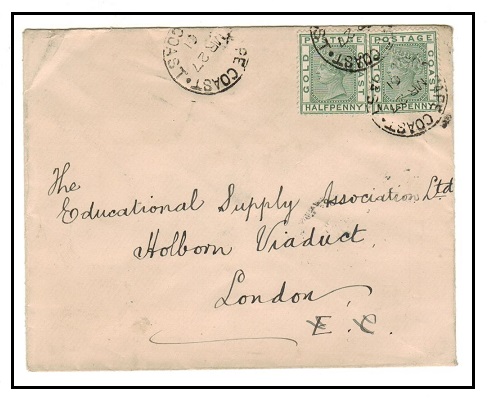 CAPE COAST
MR 27
01
GOLD COAST
POSTAGE
HALFPENNY
GOLD COAST
POSTAGE
HALFPENNY
CAPE COAST
The
Educational Supply Association Ltd
Holborn Viaduct,
London
E. C.